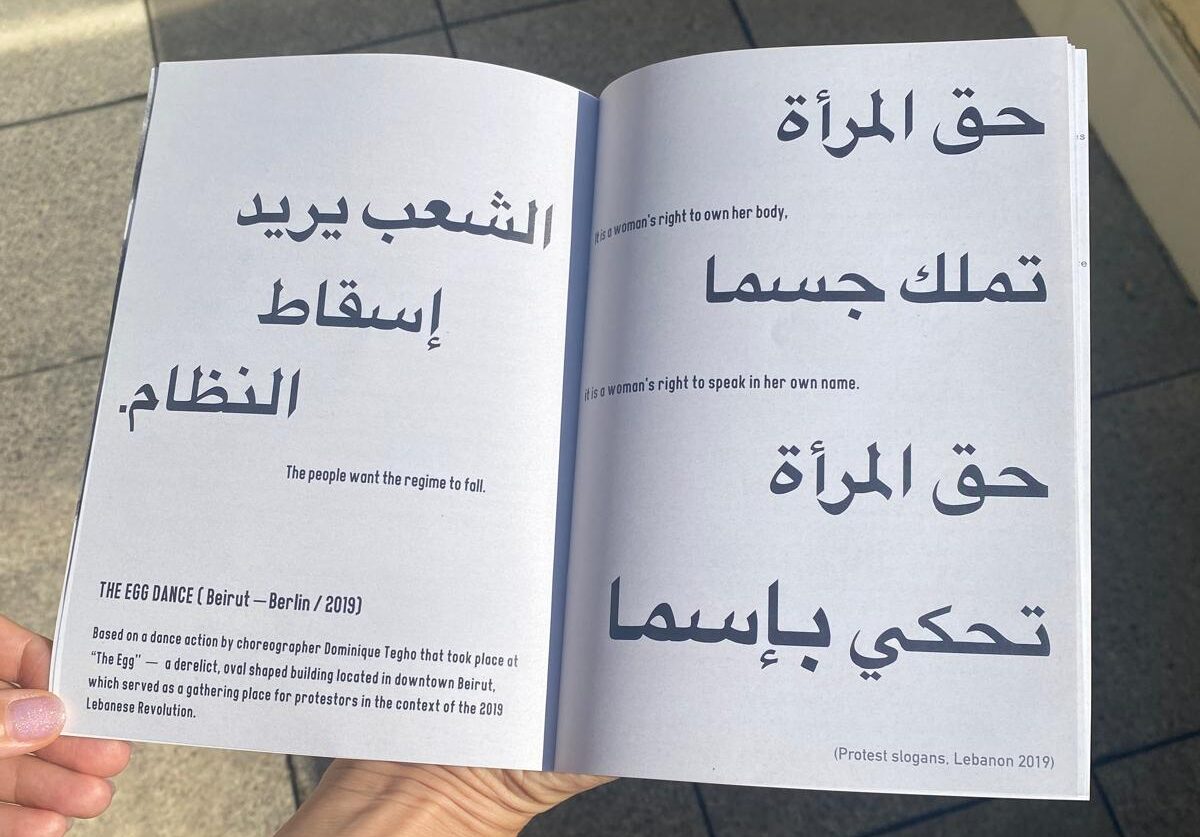 الشعب يريد
إسقاط
النظام.
The people want the regime to fall.
THE EGG DANCE ( Beirut — Berlin / 2019)
Based on a dance action by choreographer Dominique Tegho that took place at
“The Egg” — a derelict, oval shaped building located in downtown Beirut,
which served as a gathering place for protestors in the context of the 2019
Lebanese Revolution.
حق المرأة
It is a woman's right to own her body,
تملك جسما
it is a woman's right to speak in her own name.
حق المرأة
تحكي بإسما
(Protest slogans, Lebanon 2019)